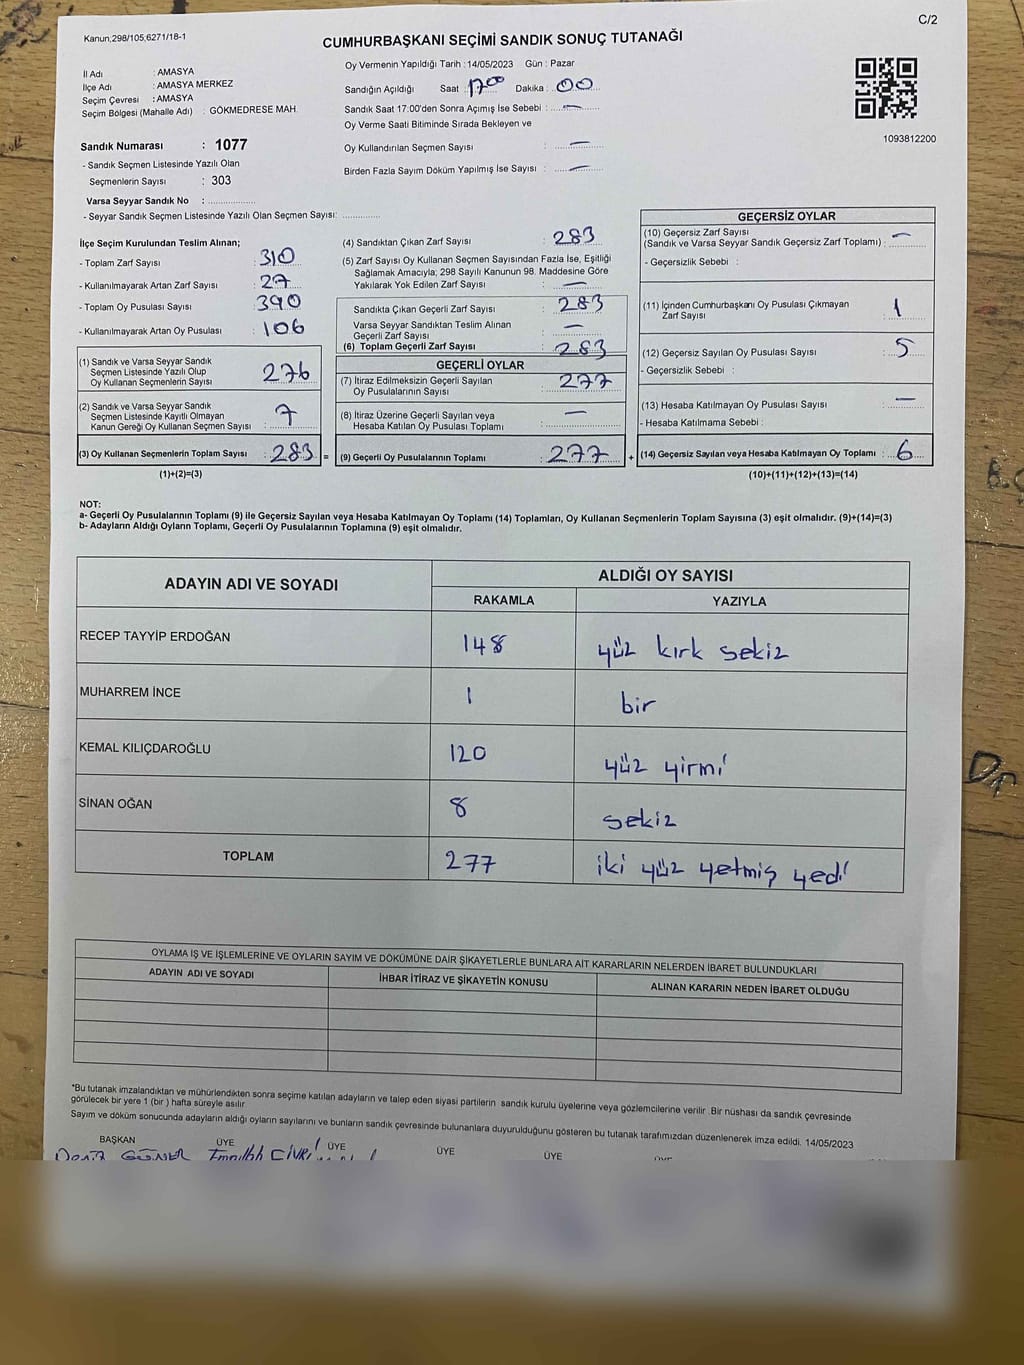 C/2
Kanun;298/105,6271/18-1
CUMHURBAŞKANI SEÇİMİ SANDIK SONUÇ TUTANAĞI
İl Adı : AMASYA
İlçe Adı : AMASYA MERKEZ
Seçim Çevresi : AMASYA
Seçim Bölgesi (Mahalle Adı) : GÖKMEDRESE MAH.
Oy Vermenin Yapıldığı Tarih : 14/05/2023 Gün : Pazar
Sandığın Açıldığı Saat : 17 00 Dakika : 00
Sandık Saat 17:00'den Sonra Açımış İse Sebebi : —
Oy Verme Saati Bitiminde Sırada Bekleyen ve
Oy Kullandırılan Seçmen Sayısı : —
Birden Fazla Sayım Döküm Yapılmış İse Sayısı : —
1093812200
Sandık Numarası : 1077
- Sandık Seçmen Listesinde Yazılı Olan
Seçmenlerin Sayısı : 303
Varsa Seyyar Sandık No :
- Seyyar Sandık Seçmen Listesinde Yazılı Olan Seçmen Sayısı:
İlçe Seçim Kurulundan Teslim Alınan;
- Toplam Zarf Sayısı : 310
- Kullanılmayarak Artan Zarf Sayısı : 27
- Toplam Oy Pusulası Sayısı : 390
- Kullanılmayarak Artan Oy Pusulası : 106
(1) Sandık ve Varsa Seyyar Sandık
Seçmen Listesinde Yazılı Olup
Oy Kullanan Seçmenlerin Sayısı : 276
(2) Sandık ve Varsa Seyyar Sandık
Seçmen Listesinde Kayıtlı Olmayan
Kanun Gereği Oy Kullanan Seçmen Sayısı : 7
(3) Oy Kullanan Seçmenlerin Toplam Sayısı : 283 =
(1)+(2)=(3)
(4) Sandıktan Çıkan Zarf Sayısı : 283
(5) Zarf Sayısı Oy Kullanan Seçmen Sayısından Fazla İse, Eşitliği
Sağlamak Amacıyla; 298 Sayılı Kanunun 98. Maddesine Göre
Yakılarak Yok Edilen Zarf Sayısı : —
Sandıkta Çıkan Geçerli Zarf Sayısı : 283
Varsa Seyyar Sandıktan Teslim Alınan
Geçerli Zarf Sayısı : —
(6) Toplam Geçerli Zarf Sayısı : 283
GEÇERLİ OYLAR
(7) İtiraz Edilmeksizin Geçerli Sayılan
Oy Pusulalarının Sayısı : 277
(8) İtiraz Üzerine Geçerli Sayılan veya
Hesaba Katılan Oy Pusulası Toplamı : —
(9) Geçerli Oy Pusulalarının Toplamı : 277 +
GEÇERSİZ OYLAR
(10) Geçersiz Zarf Sayısı
(Sandık ve Varsa Seyyar Sandık Geçersiz Zarf Toplamı) : —
- Geçersizlik Sebebi :
(11) İçinden Cumhurbaşkanı Oy Pusulası Çıkmayan
Zarf Sayısı : 1
(12) Geçersiz Sayılan Oy Pusulası Sayısı : 5
- Geçersizlik Sebebi :
(13) Hesaba Katılmayan Oy Pusulası Sayısı : —
- Hesaba Katılmama Sebebi :
(14) Geçersiz Sayılan veya Hesaba Katılmayan Oy Toplamı : 6
(10)+(11)+(12)+(13)=(14)
NOT:
a- Geçerli Oy Pusulalarının Toplamı (9) ile Geçersiz Sayılan veya Hesaba Katılmayan Oy Toplamı (14) Toplamları, Oy Kullanan Seçmenlerin Toplam Sayısına (3) eşit olmalıdır. (9)+(14)=(3)
b- Adayların Aldığı Oyların Toplamı, Geçerli Oy Pusulalarının Toplamına (9) eşit olmalıdır.
ADAYIN ADI VE SOYADI
ALDIĞI OY SAYISI
RAKAMLA YAZIYLA
RECEP TAYYİP ERDOĞAN 148 yüz kırk sekiz
MUHARREM İNCE 1 bir
KEMAL KILIÇDAROĞLU 120 yüz yirmi
SİNAN OĞAN 8 sekiz
TOPLAM 277 iki yüz yetmiş yedi
OYLAMA İŞ VE İŞLEMLERİNE VE OYLARIN SAYIM VE DÖKÜMÜNE DAİR ŞİKAYETLERLE BUNLARA AİT KARARLARIN NELERDEN İBARET BULUNDUKLARI
ADAYIN ADI VE SOYADI İHBAR İTİRAZ VE ŞİKAYETİN KONUSU ALINAN KARARIN NEDEN İBARET OLDUĞU
*Bu tutanak imzalandıktan ve mühürlendikten sonra seçime katılan adayların ve talep eden siyasi partilerin sandık kurulu üyelerine veya gözlemcilerine verilir .Bir nüshası da sandık çevresinde
görülecek bir yere 1 (bir ) hafta süreyle asılır.
Sayım ve döküm sonucunda adayların aldığı oyların sayılarını ve bunların sandık çevresinde bulunanlara duyurulduğunu gösteren bu tutanak tarafımızdan düzenlenerek imza edildi. 14/05/2023
BAŞKAN ÜYE ÜYE ÜYE ÜYE ÜYE